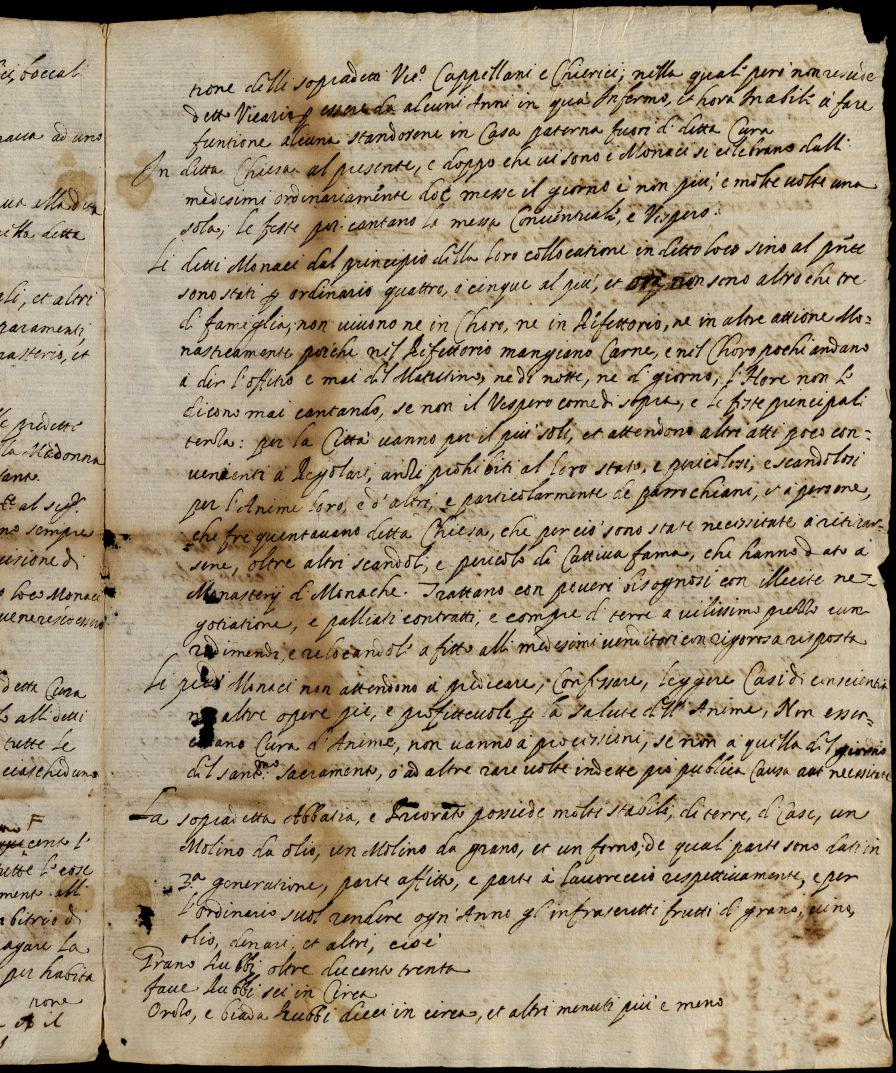 ci, boccali
ad uno
alla detta
detta
li, et altri
paramenti,
nasterio, et
predetti
la Madonna
santo
al sigr.
no sempre
visione di
loco Monaci
detta Cura
alli detti
tutte le
ciaschuno
F
cento l'
tutte le cose
ment. alli
bitrio di
agare la
per habita
tione
il
tione delli sopradetti Vic.o Cappellani e Chierici, nella qual' però non resiede
dett. Vicario p essere da alcuni Anni in quà Infermo, et hora Inabil' à fare
funtione alcuna standosene in Casa paterna fuori di detta Cura
In detta Chiesa al presente, e doppo che vi sono i Monaci si celebrano dalli
medesimi ordinariamente doè messe il giorno è non più, e molte volte una
sola, le feste poi cantano la messa Conventuale, e Vespero.
Li detti Monaci dal principio della loro collocatione in detto loco sino al pnte
sono stati p ordinario quattro, o cinque al più, et ora non sono altro che tre
di famiglia, non vivono ne in Choro, ne in Rifettorio, ne in altre attione Mo=
nasticamente poiche nel Rifettorio mangiano Carne, e nel Choro pochi andano
à dir l'offitio e mai il Matutino, ne di notte, ne di giorno, l'Hore non le
dicono mai cantando, se non il Vespero come di sopra, e le feste principali
terza: per la Città vanno per il più soli, et attendono altri atti poco con=
venienti à Regolari, anzi prohibiti al loro stato, e pericolosi, e scandolosi
per l'Anime loro, e d'altri, e particolarmente de parrochiani, et à persone,
che frequentavano detta Chiesa, che perciò sono state necessitate à ritirar=
sene, oltre altri scandoli, e pericolo di Cattiva fama, che hanno dato a
Monasterij di Monache. Trattano con poveri bisognosi con illecite ne=
gotiatione, e palliati contratti, e compre di terre a vilissimo prezzo cum
redimendi, e relocandole a fitto alli medesimi venditori con rigorosa risposta
Li pdti Monaci non attendono à predicare, Confessare, leggere Casi di conscientia
ne altre opere pie, e profittevole p la salute dell' Anime, Non esser=
citano Cura d'Anime, non vanno à processioni, se non à quella del giorno
del santmo Sacramento, ò ad altre rare volte indette p publica Causa aut necessitate
La sopradetta Abbatia, e Priorato possiede molti stabili, di terre, di Case, un
Molino da olio, un Molino da grano, et un forno, de quali parte sono dati in
3.a generatione, parte affitto, e parte à lavoreccio respettivamente, e per
l'ordinario suol rendere ogn' Anno gl' infrascritti frutti di grano, vino,
olio, denari, et altri, cioè
Grano Rubbi oltre ducento trenta
fave Rubbi sei in Circa
Orzo, e biada Rubbi dieci in circa, et altri menuti più e meno